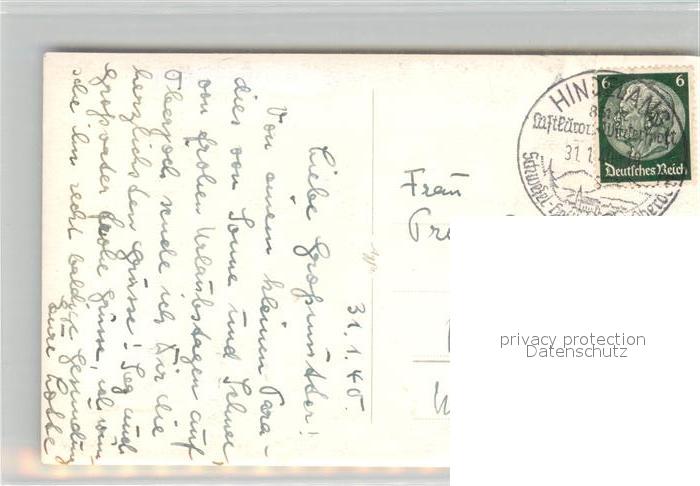 31.1.40.
Liebe Großmutter!
Von einem kleinen Para-
dies von Sonne und Schnee
von frohen Urlaubstagen auf
Oberjoch sende ich Dir die
herzlichsten Grüsse! Sag auch
Großvater frohe Grüsse, ich wün-
sche ihm recht baldige Genesung
Eure Lotte
Frau
HINDELANG
Luftkurort-Wintersport
31.1.
Schwefel-
6 6
Deutsches Reich
privacy protection
Datenschutz